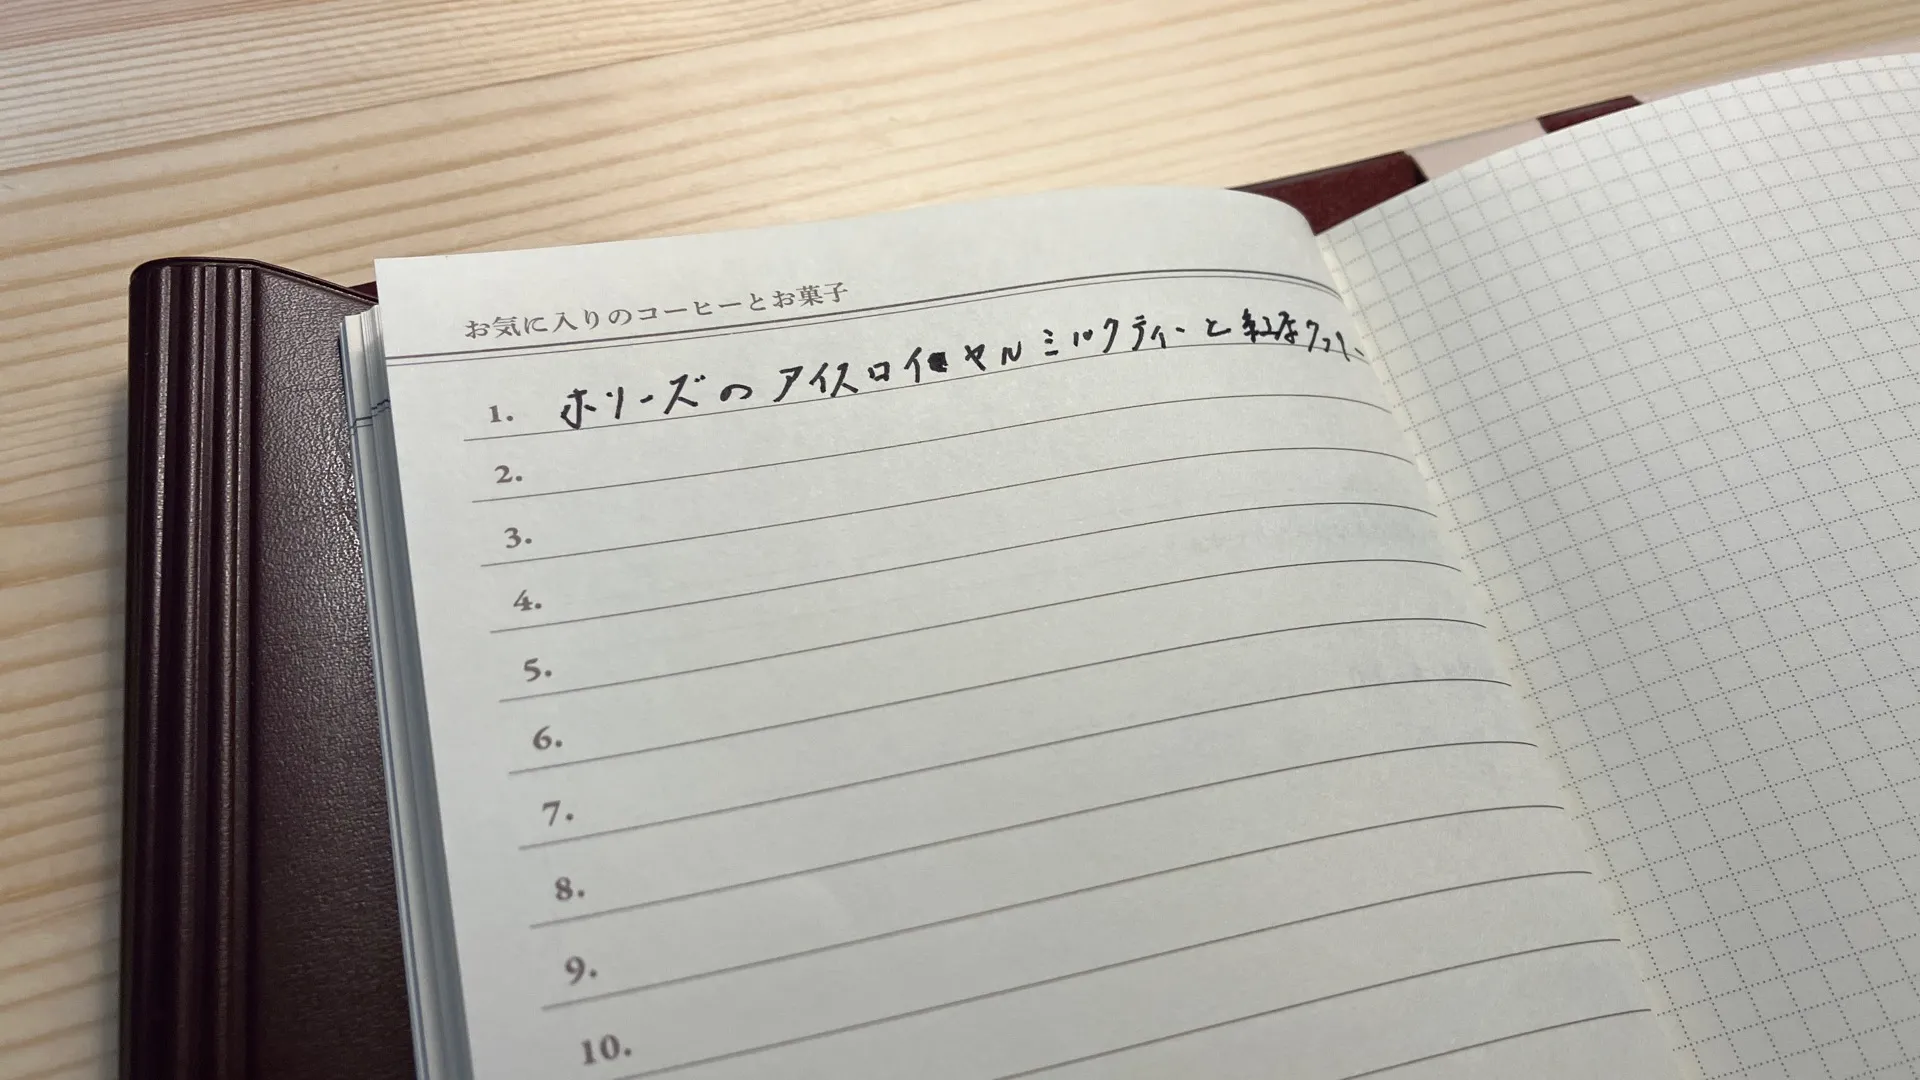 お気に入りのコーヒーとお菓子
1. ホリーズのアイスロイヤルミルクティーと紅茶クッキー
2.
3.
4.
5.
6.
7.
8.
9.
10.